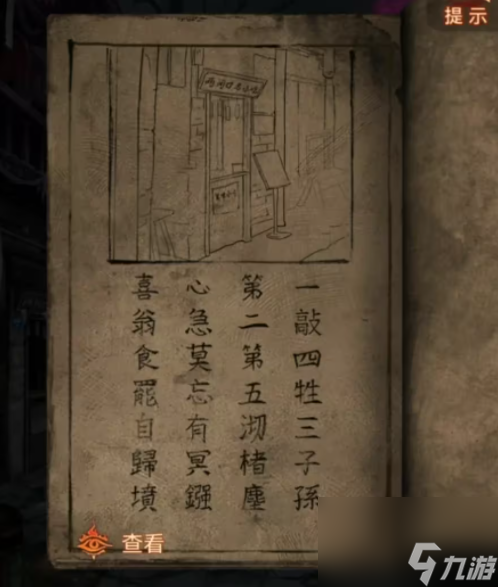 提示
一敲四牲三子孫
第二第五沏楮塵
心急莫忘有冥鏹
喜翁食罷自歸墳
查看
九游